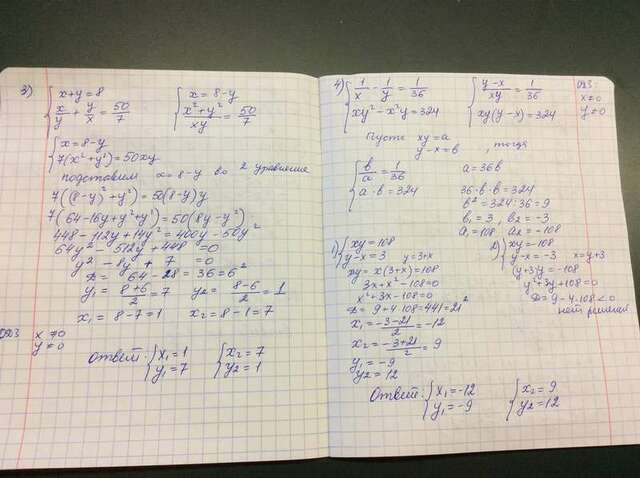 3) { x+y=8 { x=8-y
x/y + y/x = 50/7 (x²+y²)/xy = 50/7
{ x=8-y
7(x²+y²)=50xy
подставим x=8-y во 2 уравнение
7((8-y)²+y²)=50(8-y)y
7(64-16y+y²+y²)=50(8y-y²)
448-112y+14y²=400y-50y²
64y²-512y+448=0
y²-8y+7=0
D=64-28=36=6²
y₁=(8+6)/2=7 y2=(8-6)/2=1
x₁=8-7=1 x2=8-1=7
ОДЗ x≠0
y≠0
Ответ: { x₁=1 { x2=7
y₁=7 y2=1
4) { 1/x - 1/y = 1/36 { (y-x)/xy = 1/36 ОДЗ:
xy²-x²y=324 xy(y-x)=324 x≠0
y≠0
Пусть xy=a
y-x=b , тогда
{ b/a = 1/36 a=36b
a·b=324 36·b·b=324
b²=324:36=9
b₁=3, b2=-3
a₁=108 a2=-108
1) { xy=108
y-x=3 y=3+x
xy=x(3+x)=108
3x+x²-108=0
x²+3x-108=0
D=9+4·108=441=21²
x₁=(-3-21)/2=-12
x2=(-3+21)/2=9
y₁=-9
y2=12
2) { xy=-108
y-x=-3 x=y+3
(y+3)y=-108
y²+3y+108=0
D=9-4·108<0
нет решений
Ответ: { x₁=-12 { x2=9
y₁=-9 y2=12